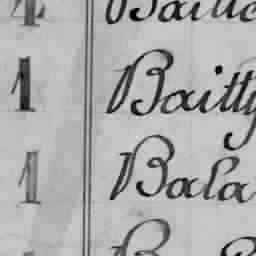 1 Baitty
1 Bala